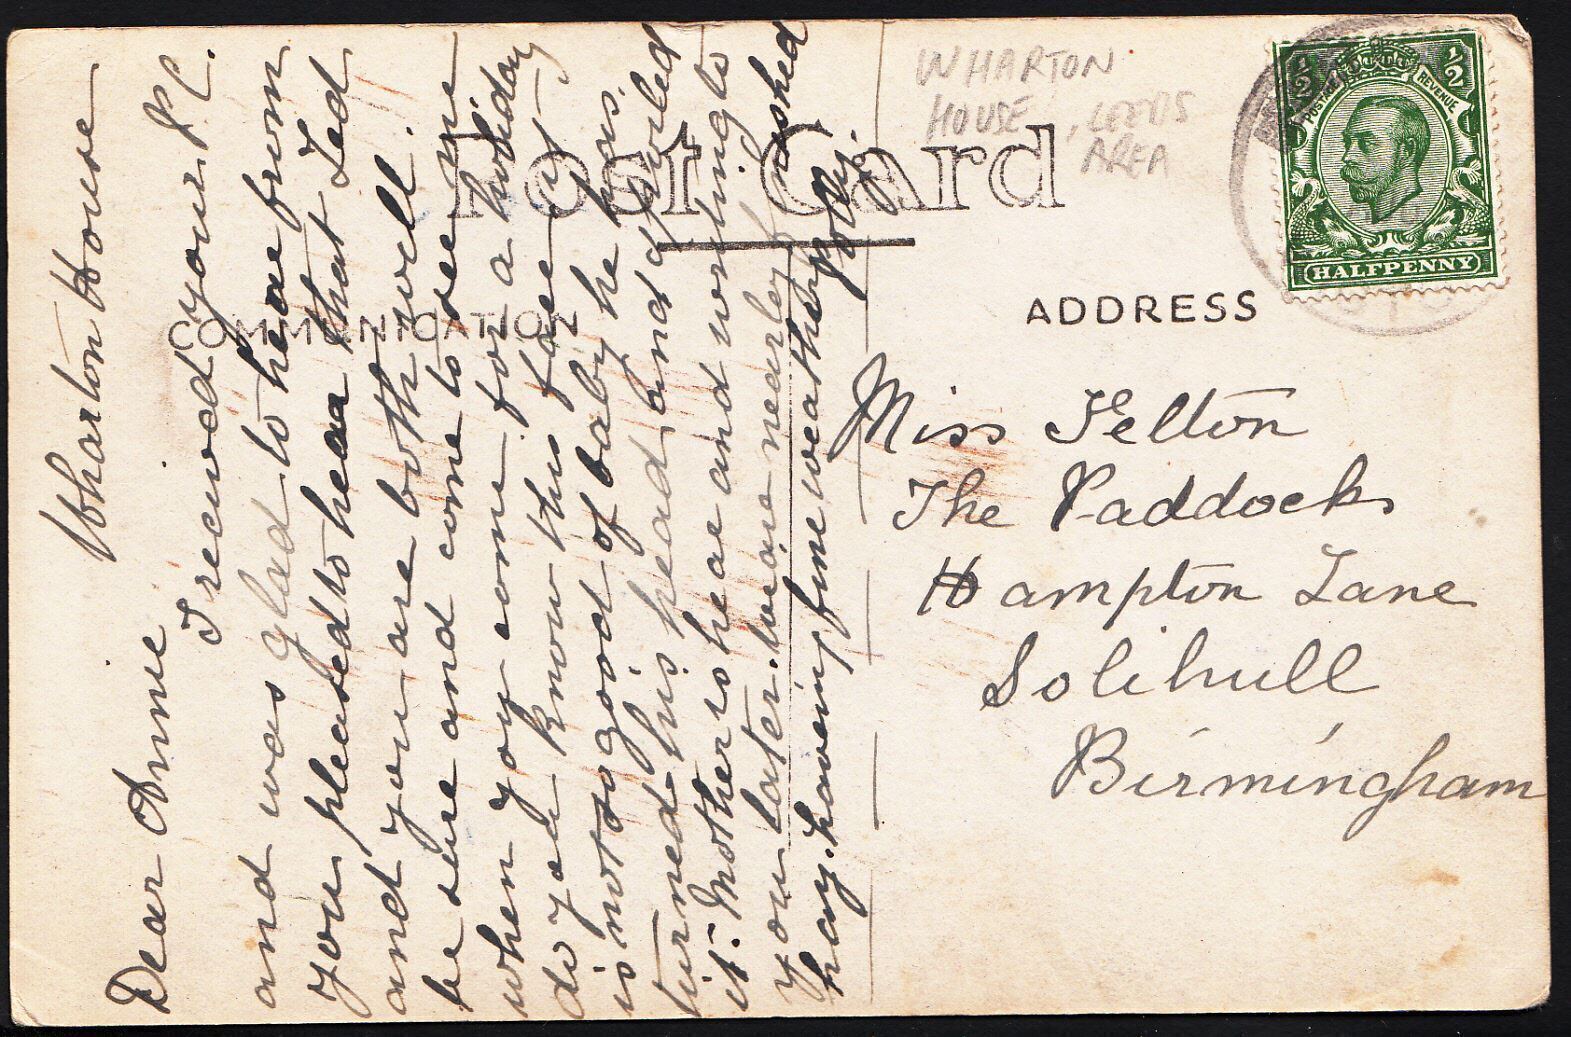 Wharton House
Dear Annie
I received your P.C.
and was glad to hear from
you pleased to hear that Ted
and you are both well.
be sure and come to see me
when you come for a holiday
do you know this face it
is not a good of baby he has
turned his head and spoiled
it. Mother is hear and writing to
you later. we are nearly finished
hay. haveing fine weather
Polly.
POST CARD
COMMUNICATION
ADDRESS
WHARTON
HOUSE, LEEDS
AREA
1/2 1/2
POSTAGE REVENUE
HALFPENNY
Miss Felton
The Paddock
Hampton Lane
Solihull
Birmingham